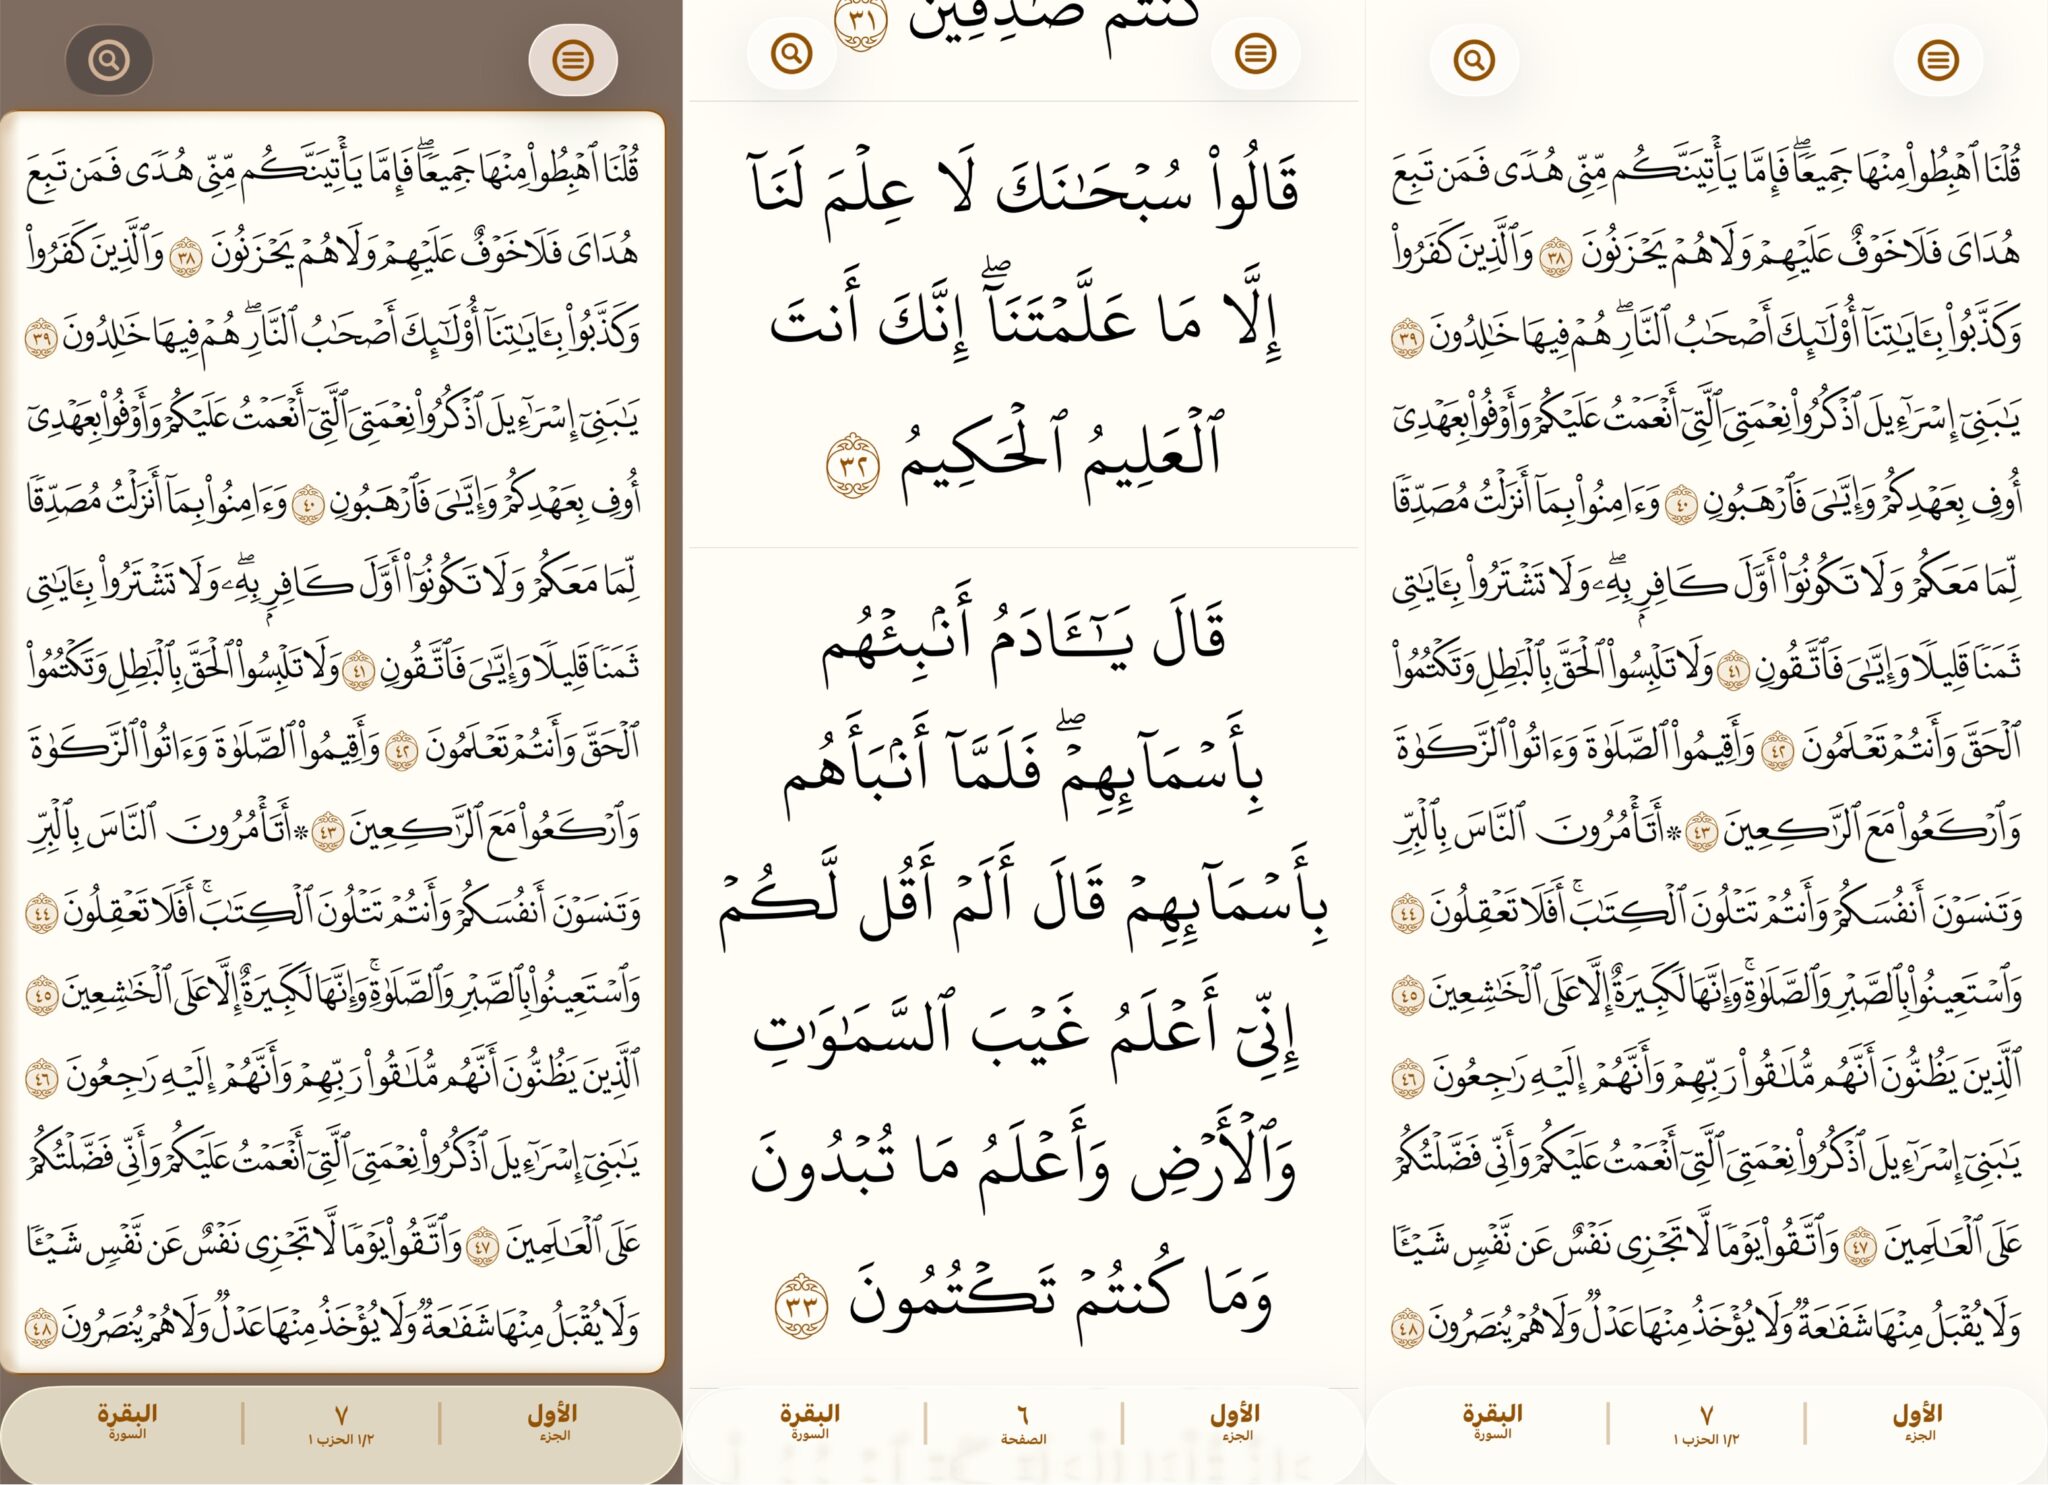 قُلْنَا ٱهْبِطُوا۟ مِنْهَا جَمِيعًۭا ۖ فَإِمَّا يَأْتِيَنَّكُم مِّنِّى هُدًۭى فَمَن تَبِعَ
هُدَاىَ فَلَا خَوْفٌ عَلَيْهِمْ وَلَا هُمْ يَحْزَنُونَ ٣٨ وَٱلَّذِينَ كَفَرُوا۟
وَكَذَّبُوا۟ بِـَٔايَـٰتِنَآ أُو۟لَـٰٓئِكَ أَصْحَـٰبُ ٱلنَّارِ ۖ هُمْ فِيهَا خَـٰلِدُونَ ٣٩
يَـٰبَنِىٓ إِسْرَٰٓءِيلَ ٱذْكُرُوا۟ نِعْمَتِىَ ٱلَّتِىٓ أَنْعَمْتُ عَلَيْكُمْ وَأَوْفُوا۟ بِعَهْدِىٓ
أُوفِ بِعَهْدِكُمْ وَإِيَّـٰىَ فَٱرْهَبُونِ ٤٠ وَءَامِنُوا۟ بِمَآ أَنزَلْتُ مُصَدِّقًۭا
لِّمَا مَعَكُمْ وَلَا تَكُونُوٓا۟ أَوَّلَ كَافِرٍۭ بِهِۦ ۖ وَلَا تَشْتَرُوا۟ بِـَٔايَـٰتِى
ثَمَنًۭا قَلِيلًۭا وَإِيَّـٰىَ فَٱتَّقُونِ ٤١ وَلَا تَلْبِسُوا۟ ٱلْحَقَّ بِٱلْبَـٰطِلِ وَتَكْتُمُوا۟
ٱلْحَقَّ وَأَنتُمْ تَعْلَمُونَ ٤٢ وَأَقِيمُوا۟ ٱلصَّلَوٰةَ وَءَاتُوا۟ ٱلزَّكَوٰةَ
وَٱرْكَعُوا۟ مَعَ ٱلرَّٰكِعِينَ ٤٣ * أَتَأْمُرُونَ ٱلنَّاسَ بِٱلْبِرِّ
وَتَنسَوْنَ أَنفُسَكُمْ وَأَنتُمْ تَتْلُونَ ٱلْكِتَـٰبَ ۚ أَفَلَا تَعْقِلُونَ ٤٤
وَٱسْتَعِينُوا۟ بِٱلصَّبْرِ وَٱلصَّلَوٰةِ ۚ وَإِنَّهَا لَكَبِيرَةٌ إِلَّا عَلَى ٱلْخَـٰشِعِينَ ٤٥
ٱلَّذِينَ يَظُنُّونَ أَنَّهُم مُّلَـٰقُوا۟ رَبِّهِمْ وَأَنَّهُمْ إِلَيْهِ رَٰجِعُونَ ٤٦
يَـٰبَنِىٓ إِسْرَٰٓءِيلَ ٱذْكُرُوا۟ نِعْمَتِىَ ٱلَّتِىٓ أَنْعَمْتُ عَلَيْكُمْ وَأَنِّى فَضَّلْتُكُمْ
عَلَى ٱلْعَـٰلَمِينَ ٤٧ وَٱتَّقُوا۟ يَوْمًۭا لَّا تَجْزِى نَفْسٌ عَن نَّفْسٍۢ شَيْـًۭٔا
وَلَا يُقْبَلُ مِنْهَا شَفَـٰعَةٌۭ وَلَا يُؤْخَذُ مِنْهَا عَدْلٌۭ وَلَا هُمْ يُنصَرُونَ ٤٨
الأول ٧ البقرة
الجزء ١/٢ الحزب ١ السورة
كُنتُمْ صَـٰدِقِينَ ٣١
قَالُوا۟ سُبْحَـٰنَكَ لَا عِلْمَ لَنَآ
إِلَّا مَا عَلَّمْتَنَآ ۖ إِنَّكَ أَنتَ
ٱلْعَلِيمُ ٱلْحَكِيمُ ٣٢
قَالَ يَـٰٓـَٔادَمُ أَنۢبِئْهُم
بِأَسْمَآئِهِمْ ۖ فَلَمَّآ أَنۢبَأَهُم
بِأَسْمَآئِهِمْ قَالَ أَلَمْ أَقُل لَّكُمْ
إِنِّىٓ أَعْلَمُ غَيْبَ ٱلسَّمَـٰوَٰتِ
وَٱلْأَرْضِ وَأَعْلَمُ مَا تُبْدُونَ
وَمَا كُنتُمْ تَكْتُمُونَ ٣٣
الأول ٦ البقرة
الجزء الصفحة السورة
قُلْنَا ٱهْبِطُوا۟ مِنْهَا جَمِيعًۭا ۖ فَإِمَّا يَأْتِيَنَّكُم مِّنِّى هُدًۭى فَمَن تَبِعَ
هُدَاىَ فَلَا خَوْفٌ عَلَيْهِمْ وَلَا هُمْ يَحْزَنُونَ ٣٨ وَٱلَّذِينَ كَفَرُوا۟
وَكَذَّبُوا۟ بِـَٔايَـٰتِنَآ أُو۟لَـٰٓئِكَ أَصْحَـٰبُ ٱلنَّارِ ۖ هُمْ فِيهَا خَـٰلِدُونَ ٣٩
يَـٰبَنِىٓ إِسْرَٰٓءِيلَ ٱذْكُرُوا۟ نِعْمَتِىَ ٱلَّتِىٓ أَنْعَمْتُ عَلَيْكُمْ وَأَوْفُوا۟ بِعَهْدِىٓ
أُوفِ بِعَهْدِكُمْ وَإِيَّـٰىَ فَٱرْهَبُونِ ٤٠ وَءَامِنُوا۟ بِمَآ أَنزَلْتُ مُصَدِّقًۭا
لِّمَا مَعَكُمْ وَلَا تَكُونُوٓا۟ أَوَّلَ كَافِرٍۭ بِهِۦ ۖ وَلَا تَشْتَرُوا۟ بِـَٔايَـٰتِى
ثَمَنًۭا قَلِيلًۭا وَإِيَّـٰىَ فَٱتَّقُونِ ٤١ وَلَا تَلْبِسُوا۟ ٱلْحَقَّ بِٱلْبَـٰطِلِ وَتَكْتُمُوا۟
ٱلْحَقَّ وَأَنتُمْ تَعْلَمُونَ ٤٢ وَأَقِيمُوا۟ ٱلصَّلَوٰةَ وَءَاتُوا۟ ٱلزَّكَوٰةَ
وَٱرْكَعُوا۟ مَعَ ٱلرَّٰكِعِينَ ٤٣ * أَتَأْمُرُونَ ٱلنَّاسَ بِٱلْبِرِّ
وَتَنسَوْنَ أَنفُسَكُمْ وَأَنتُمْ تَتْلُونَ ٱلْكِتَـٰبَ ۚ أَفَلَا تَعْقِلُونَ ٤٤
وَٱسْتَعِينُوا۟ بِٱلصَّبْرِ وَٱلصَّلَوٰةِ ۚ وَإِنَّهَا لَكَبِيرَةٌ إِلَّا عَلَى ٱلْخَـٰشِعِينَ ٤٥
ٱلَّذِينَ يَظُنُّونَ أَنَّهُم مُّلَـٰقُوا۟ رَبِّهِمْ وَأَنَّهُمْ إِلَيْهِ رَٰجِعُونَ ٤٦
يَـٰبَنِىٓ إِسْرَٰٓءِيلَ ٱذْكُرُوا۟ نِعْمَتِىَ ٱلَّتِىٓ أَنْعَمْتُ عَلَيْكُمْ وَأَنِّى فَضَّلْتُكُمْ
عَلَى ٱلْعَـٰلَمِينَ ٤٧ وَٱتَّقُوا۟ يَوْمًۭا لَّا تَجْزِى نَفْسٌ عَن نَّفْسٍۢ شَيْـًۭٔا
وَلَا يُقْبَلُ مِنْهَا شَفَـٰعَةٌۭ وَلَا يُؤْخَذُ مِنْهَا عَدْلٌۭ وَلَا هُمْ يُنصَرُونَ ٤٨
الأول ٧ البقرة
الجزء ١/٢ الحزب ١ السورة